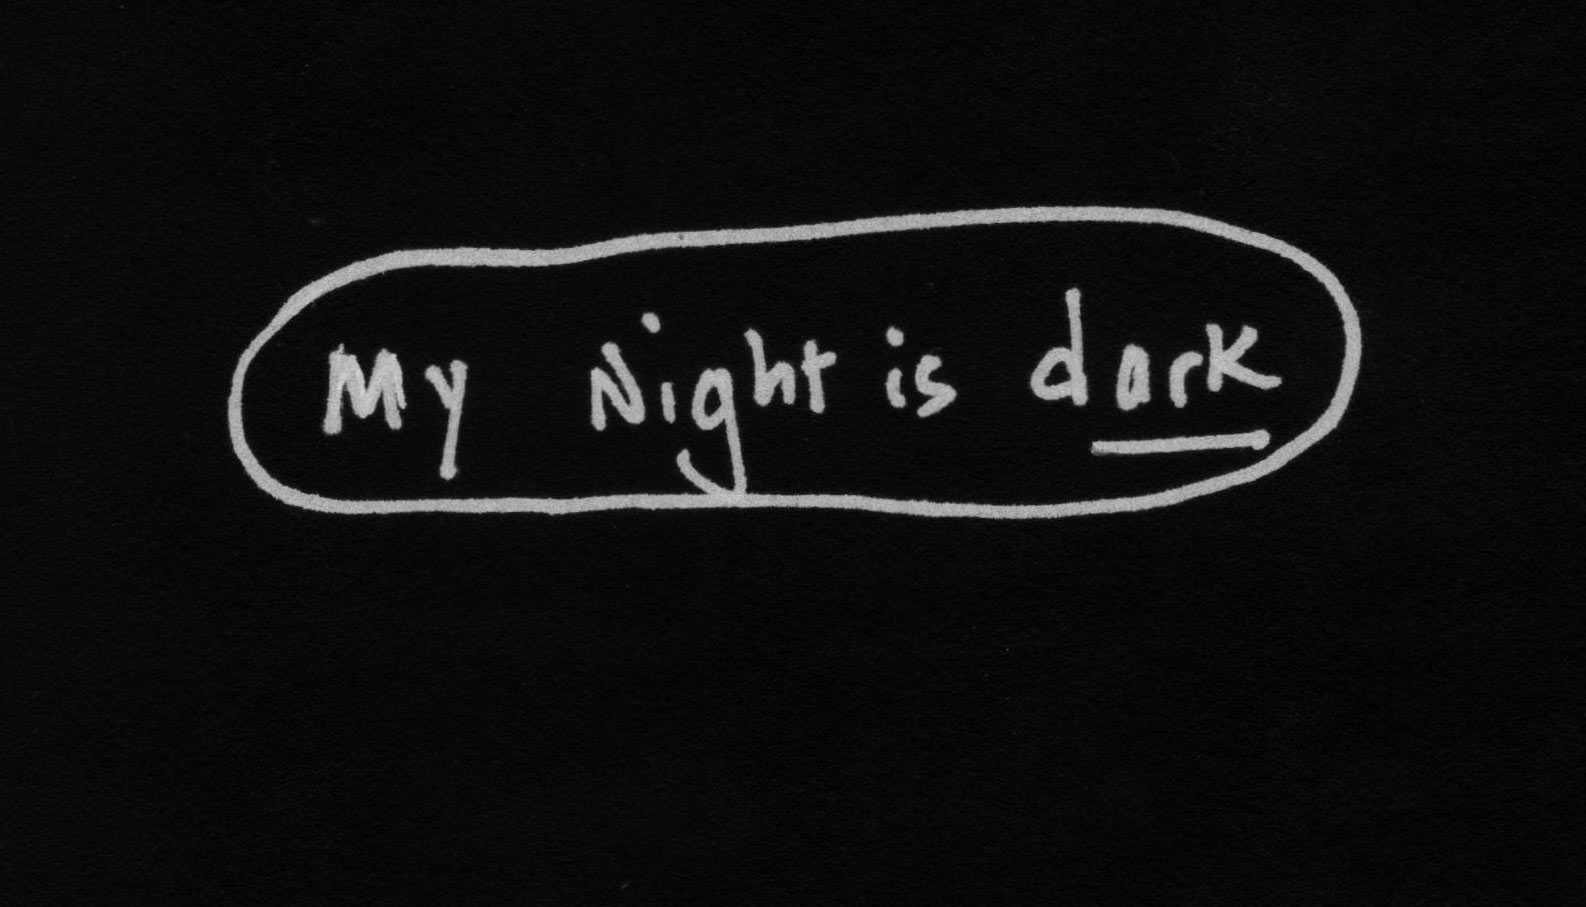 My Night is dark